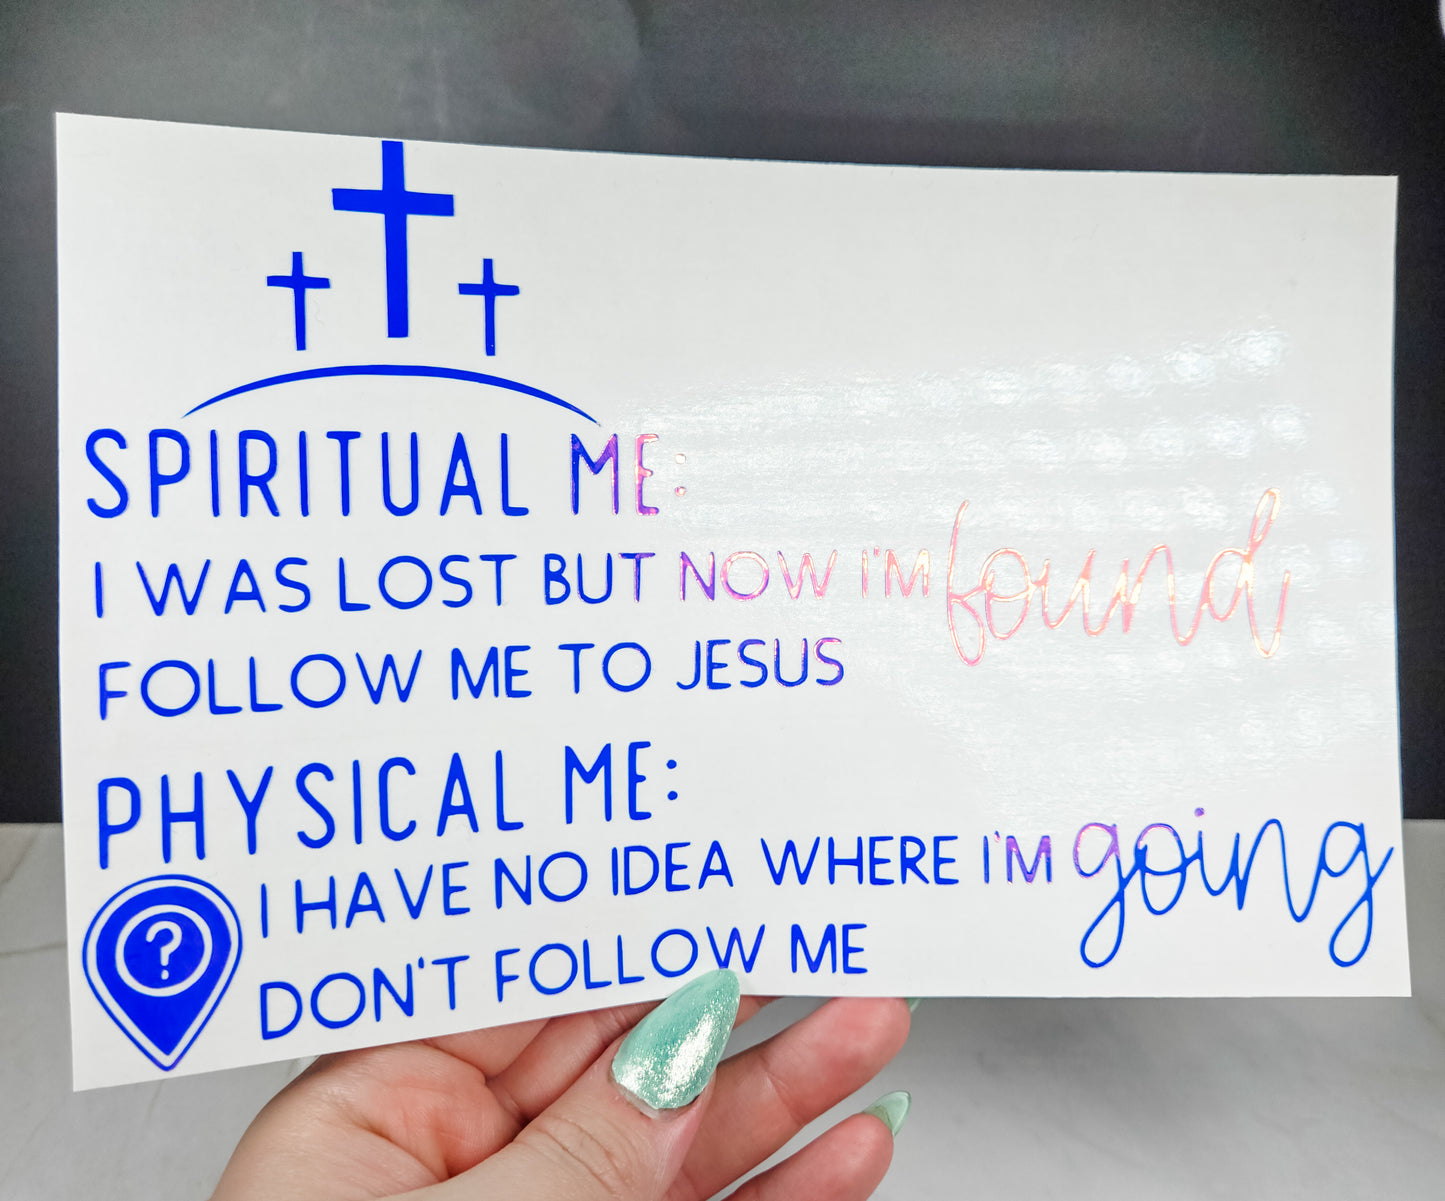 SPIRITUAL ME:
I WAS LOST BUT NOW I'M found
FOLLOW ME TO JESUS
PHYSICAL ME:
I HAVE NO IDEA WHERE I'M going
?
DON'T FOLLOW ME